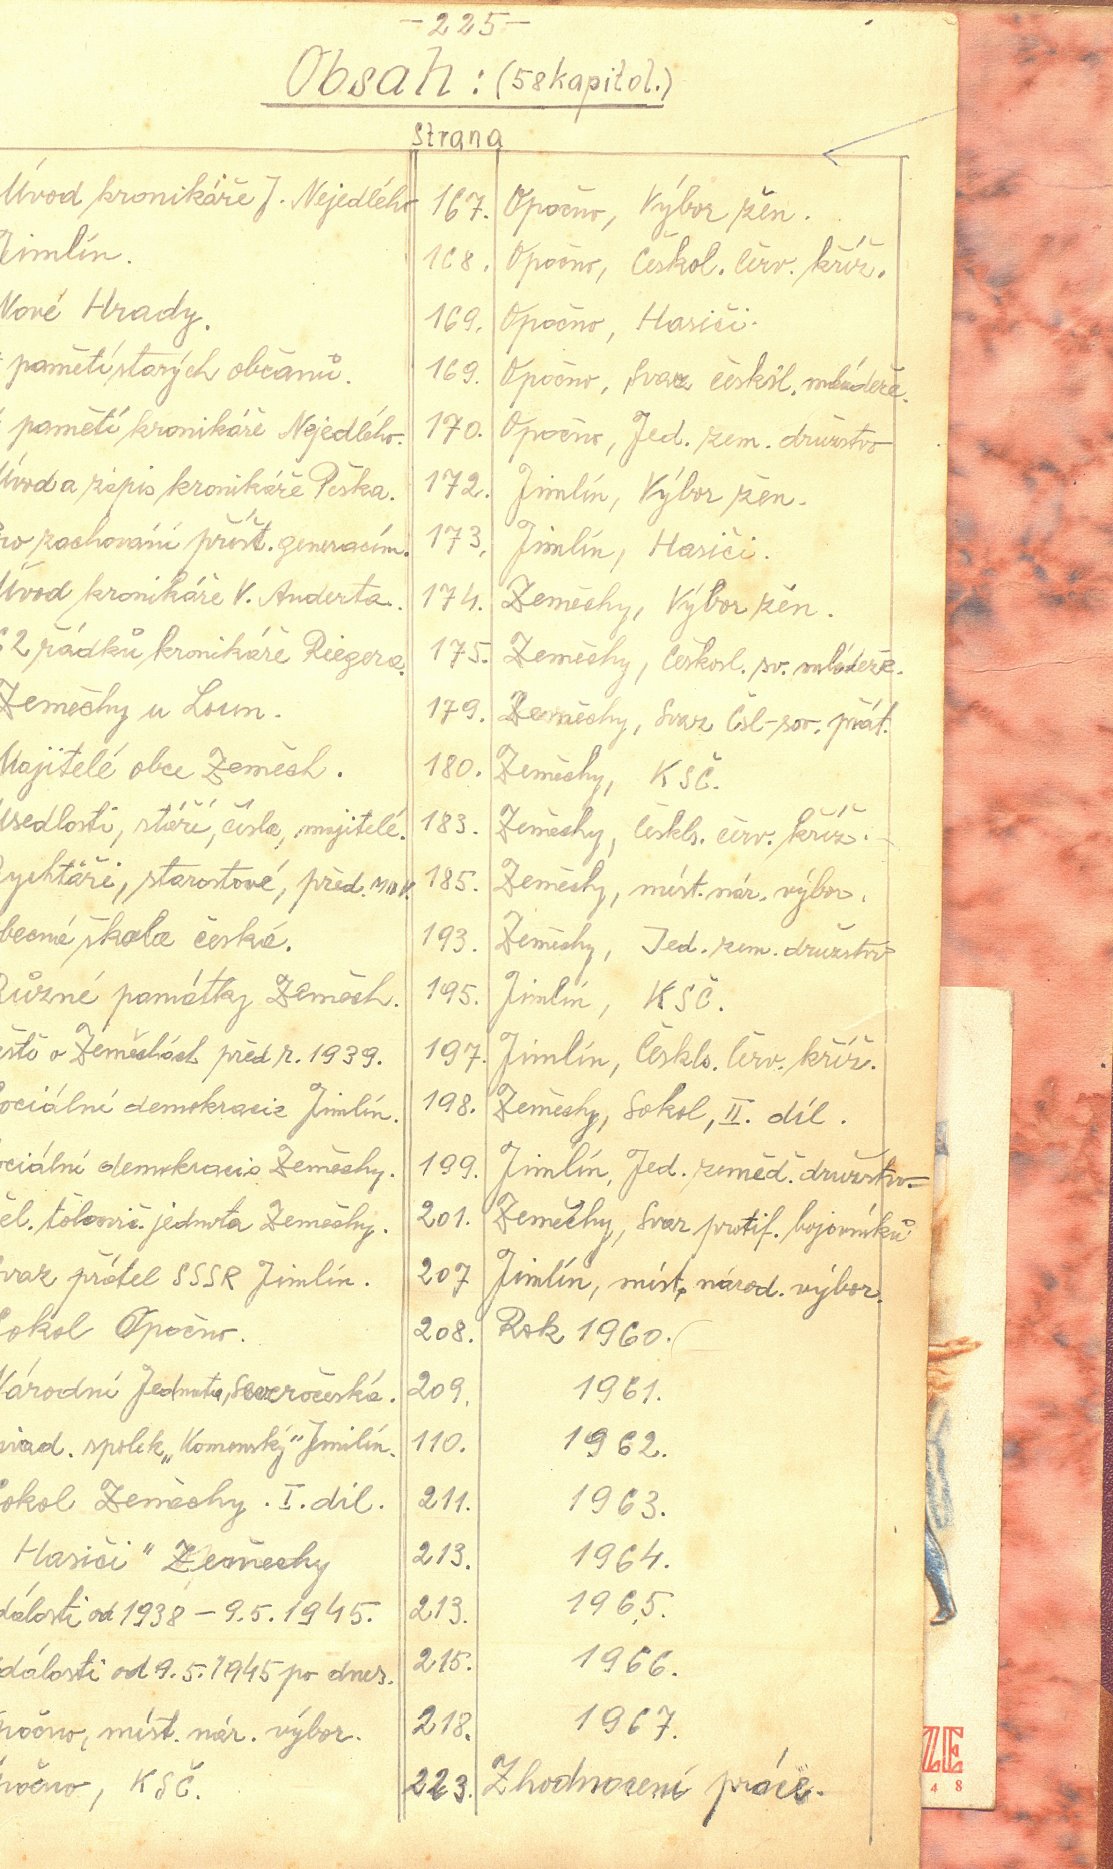 -225-
Obsah: (58 kapitol.)
Strana
Úvod kronikáře J. Nejedlého 167. Opočno, Výbor žen.
Jimlín. 168. Opočno, Českol. Červ. kříž.
Nové Hrady. 169. Opočno, Hasiči.
pamětí starých občanů. 169. Opočno, Svaz českosl. mládeže.
pamětí kronikáře Nejedlého. 170. Opočno, Jed. zem. družstvo
Úvod a zápis kronikáře Peška. 172. Jimlín, Výbor žen.
ro zachování příšt. generacím. 173. Jimlín, Hasiči.
Úvod kronikáře V. Anderta. 174. Zeměchy, Výbor žen.
2 řádků kronikáře Riegera. 175. Zeměchy, Českosl. sv. mládeže.
Zeměchy u Loun. 179. Zeměchy, Svaz Čsl-sov. přát.
Majitelé obce Zeměch. 180. Zeměchy, KSČ.
Usedlosti, stáří, čísla, majitelé. 183. Zeměchy, Českls. červ. kříž.
Rychtáři, starostové, před. MNV. 185. Zeměchy, míst. nár. výbor.
becná škola česká. 193. Zeměchy, Jed. zem. družstvo
Různé památky Zeměch. 195. Jimlín, KSČ.
eště o Zeměchách před r. 1939. 197. Jimlín, Českls. Červ. kříž.
Sociální demokracie Jimlín. 198. Zeměchy, Sokol, II. díl.
ociální demokracie Zeměchy. 199. Jimlín, Jed. zeměd. družstvo
ěl. tělovič. jednota Zeměchy. 201. Zeměchy, Svaz protif. bojovníků
Svaz přátel SSSR Jimlín. 207 Jimlín, míst. národ. výbor.
Sokol Opočno. 208. Rok 1960.
Národní Jednota, Severočeská. 209. 1961.
ivad. spolek „Komenský" Jimlín. 110. 1962.
Sokol Zeměchy. I. díl. 211. 1963.
Hasiči" Zeměchy 213. 1964.
dálosti od 1938 - 9.5.1945. 213. 1965.
dálosti od 9.5.1945 po dnes. 215. 1966.
počno, míst. nár. výbor. 218. 1967.
počno, KSČ. 223. Zhodnocení práce.
ZE
48